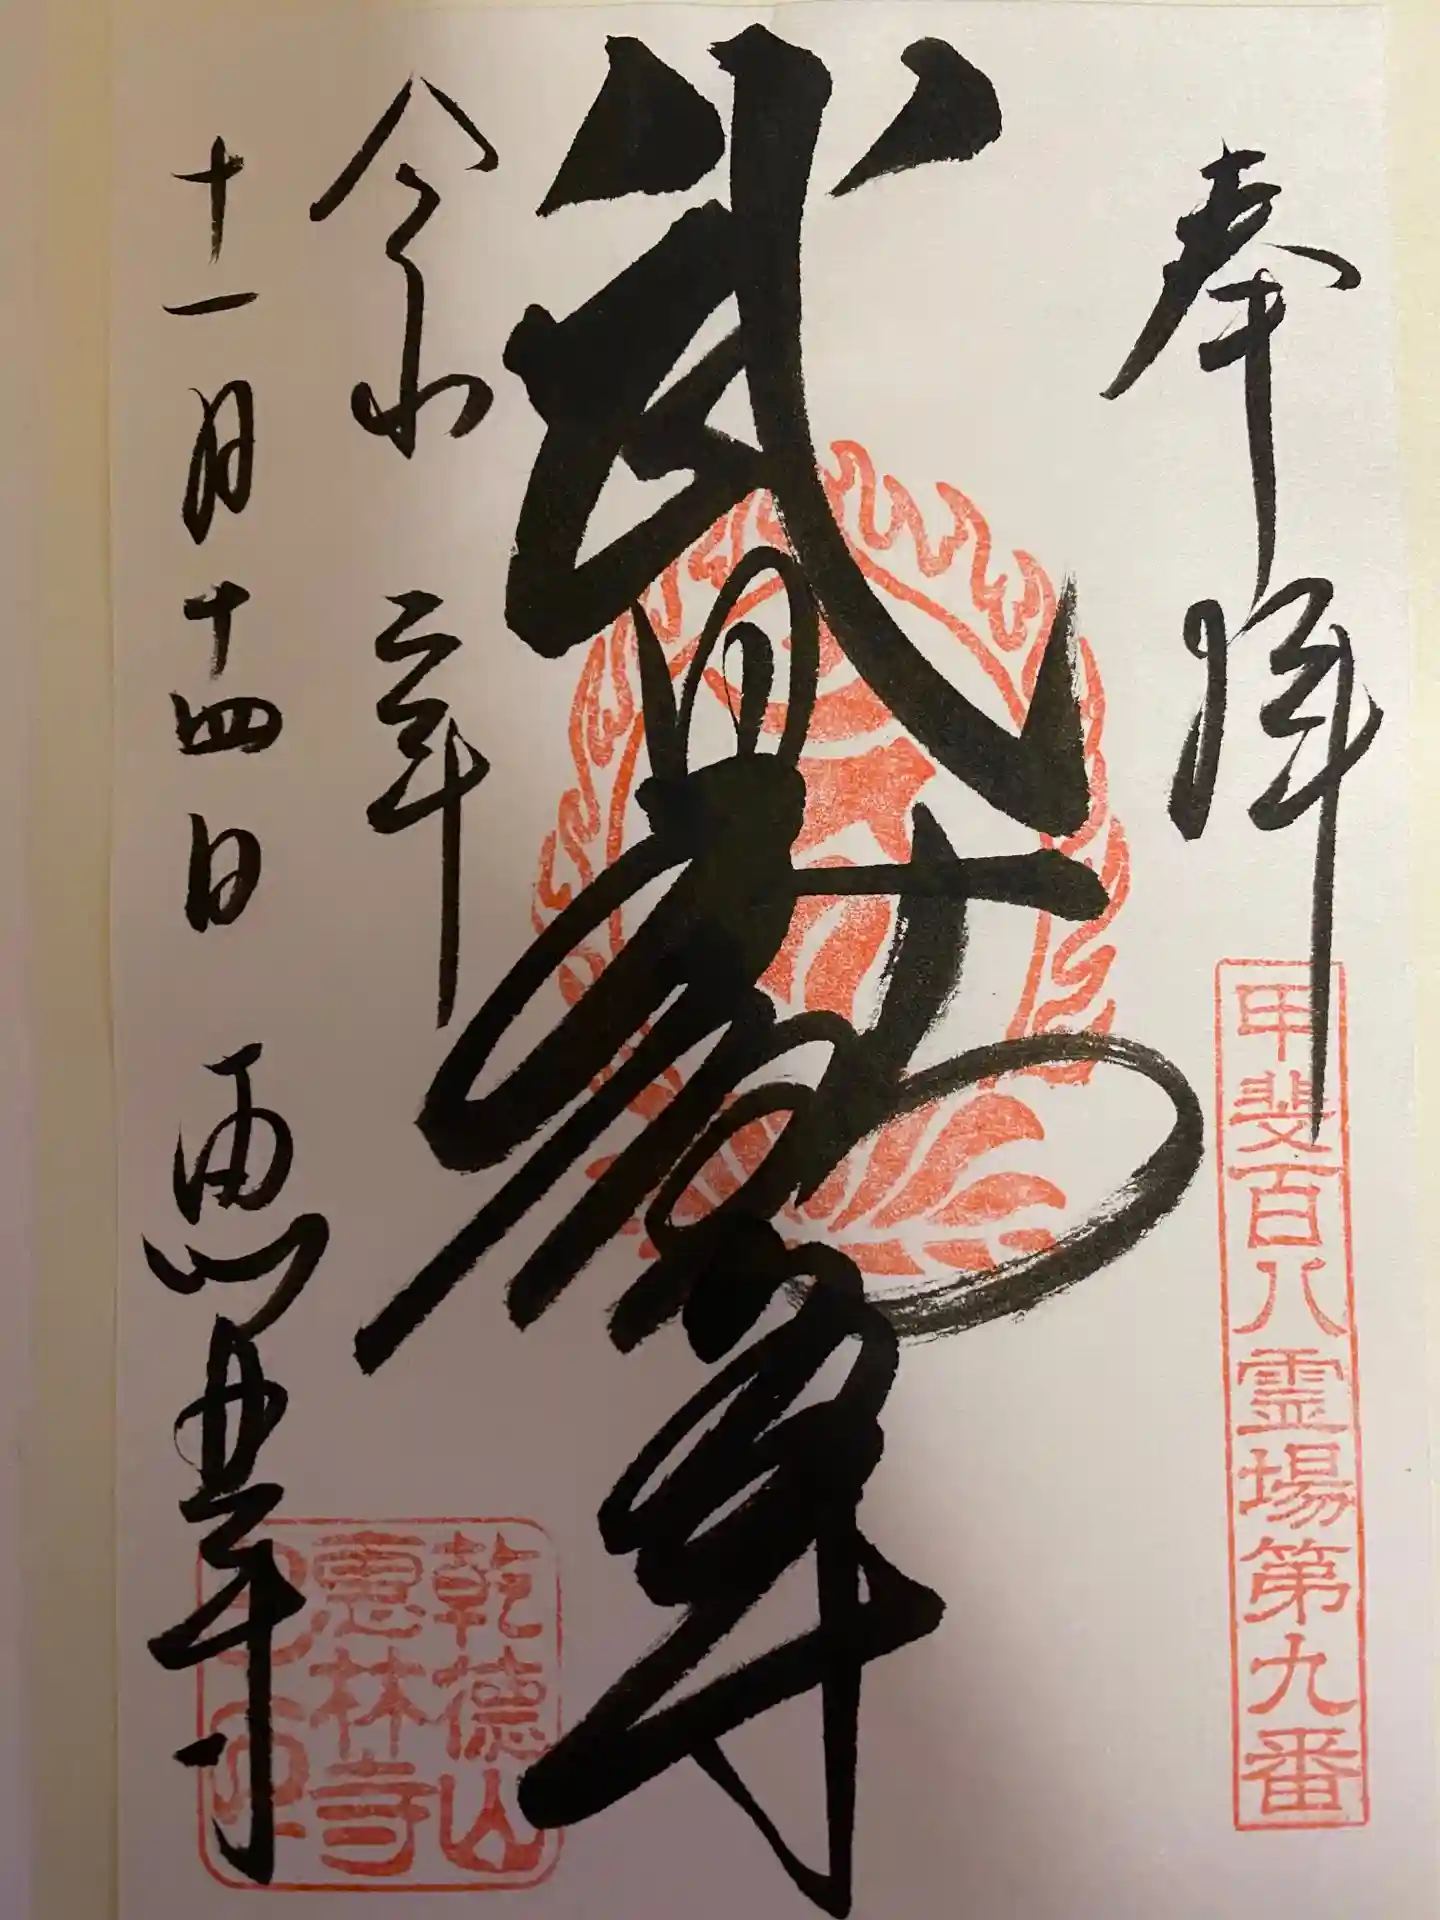 奉拝
甲斐百八霊場第九番
武田不動尊
令和二年
十一月十四日
恵林寺
乾徳山
恵林寺